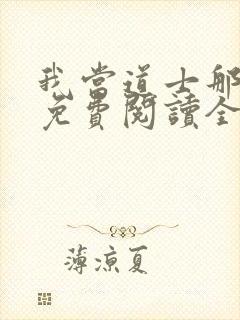 我当道士那
免费阅读全
薄凉夏